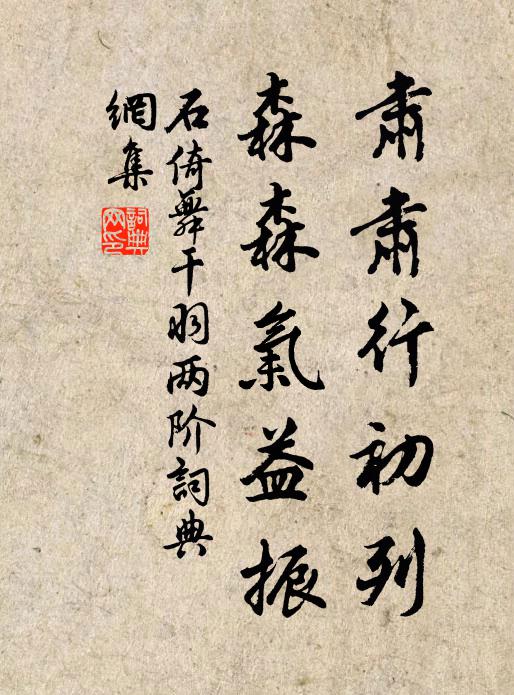 肅肅行初列
森森氣益振
石倚舞干羽两阶詞典
網集
詞典
网印